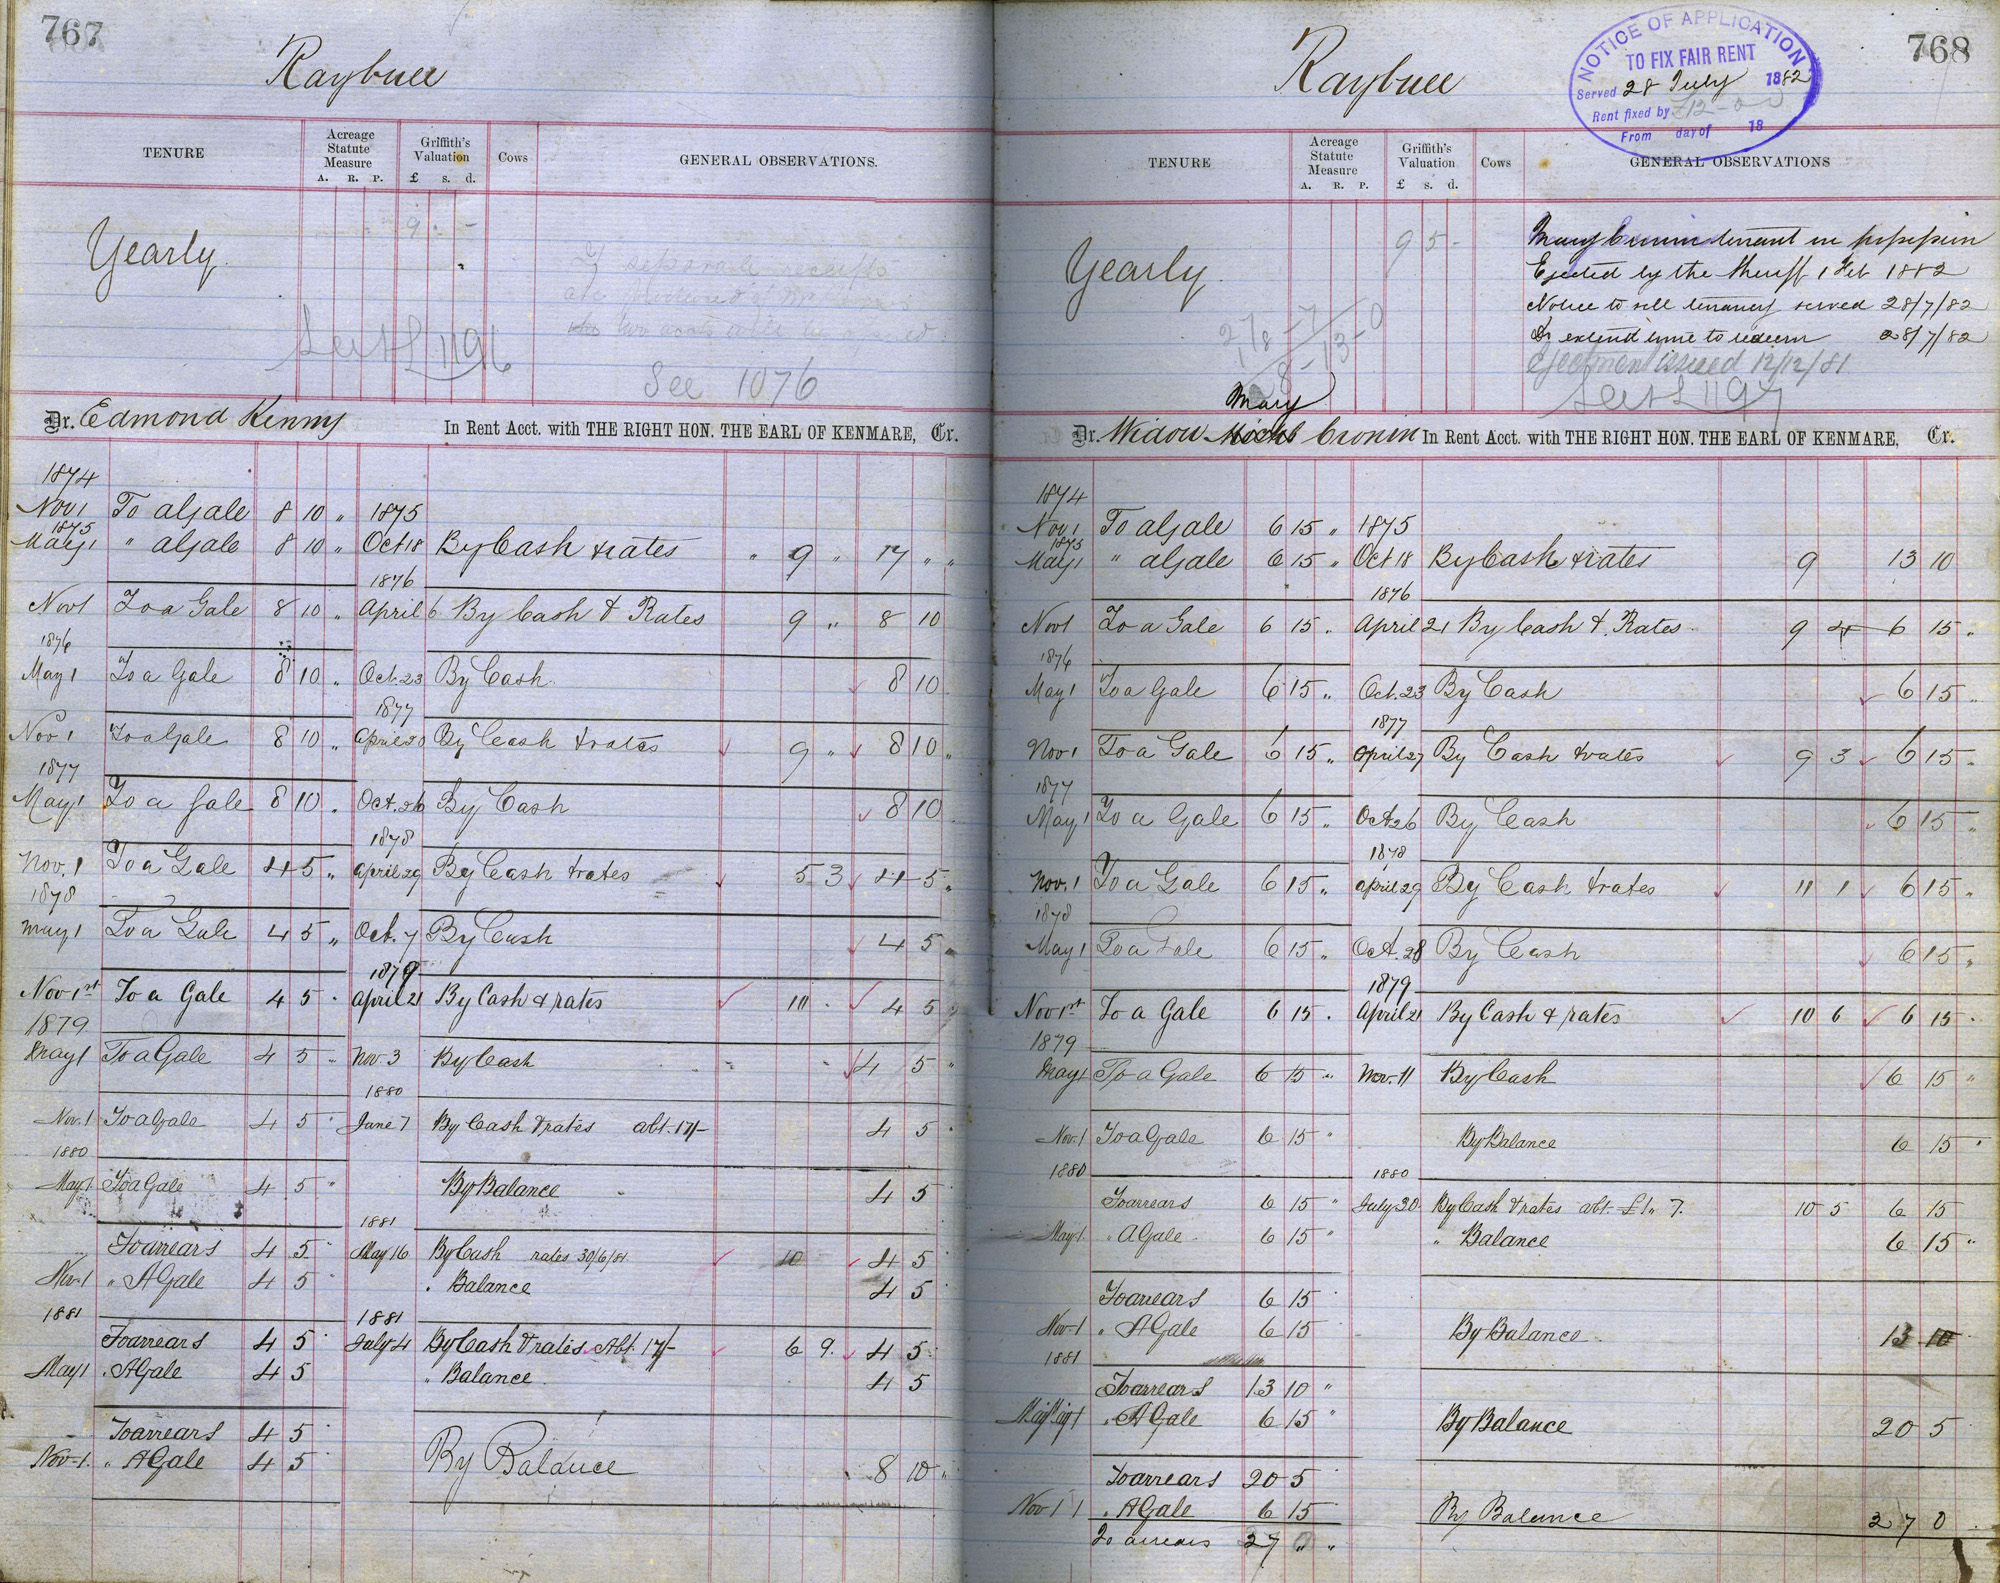 767
Raybuee
TENURE
Acreage Statute Measure
A. R. P.
Griffith's Valuation
£ s. d.
Cows
GENERAL OBSERVATIONS.
Yearly
9 . -
separate receipts
See L 1196
See 1076
Dr. Edmond Kenny In Rent Acct. with THE RIGHT HON. THE EARL OF KENMARE, Cr.
1874
Nov 1 To a Gale 8 10 " 1875
1875
May 1 " a Gale 8 10 " Oct 18 By Cash & rates " 9 " 17 " "
1876
Nov 1 To a Gale 8 10 " April 6 By Cash & Rates 9 " 8 10
1876
May 1 To a Gale 8 10 " Oct. 23 By Cash 8 10
1877
Nov. 1 To a Gale 8 10 " April 20 By Cash & rates 9 " 8 10 "
1877
May 1 To a Gale 8 10 " Oct. 26 By Cash 8 10
1878
Nov. 1 To a Gale 4 5 " April 29 By Cash & rates 5 3 4 5 "
1878
May 1 To a Gale 4 5 " Oct. 7 By Cash 4 5 "
1879
Nov 1st To a Gale 4 5 " April 21 By Cash & rates 11 . 4 5
1879
May 1 To a Gale 4 5 " Nov 3 By Cash 4 5 "
1880
Nov. 1 To a Gale 4 5 " June 7 By Cash & rates abt. 17/- 4 5 "
1880
May 1 To a Gale 4 5 " By Balance 4 5
1881
To arrears 4 5 " May 16 By Cash rates 30/6/81 10 4 5
Nov. 1 " A Gale 4 5 " " Balance 4 5
1881 1881
To arrears 4 5 " July 4 By Cash & rates Abt. 17/- 6 9. 4 5
May 1 " A Gale 4 5 " Balance 4 5
To arrears 4 5
Nov. 1. " A Gale 4 5 By Balance 8 10 "
768
Raybuee
NOTICE OF APPLICATION
TO FIX FAIR RENT
Served 28 July 1882
Rent fixed by £12-0-0
From day of 18
TENURE
Acreage Statute Measure
A. R. P.
Griffith's Valuation
£ s. d.
Cows
GENERAL OBSERVATIONS
Yearly
9 5 -
Mary Cronin tenant in possession
Ejected by the Sheriff 1 Feb 1882
Notice to sell tenancy served 28/7/82
Do extend time to redeem 28/7/82
Ejectment issued 12/12/81
See L 1197
Mary
Dr. Widow Michl Cronin In Rent Acct. with THE RIGHT HON. THE EARL OF KENMARE, Cr.
1874
Nov. 1 To a Gale 6 15 " 1875
1875
May 1 " a Gale 6 15 " Oct 18 By Cash & rates 9 13 10
1876
Nov 1 To a Gale 6 15 " April 21 By Cash & Rates 9 4 6 15 "
1876
May 1 To a Gale 6 15 " Oct. 23 By Cash 6 15 "
1877
Nov 1 To a Gale 6 15 " April 27 By Cash & rates 9 3 6 15 "
1877
May 1 To a Gale 6 15 " Oct 26 By Cash 6 15 "
1878
Nov. 1 To a Gale 6 15 " April 29 By Cash & rates 11 1 6 15 "
1878
May 1 To a Gale 6 15 " Oct. 28 By Cash 6 15 "
1879
Nov 1st To a Gale 6 15 . April 21 By Cash & rates 10 6 6 15 .
1879
May 1 To a Gale 6 15 " Nov. 11 By Cash 6 15 "
Nov. 1 To a Gale 6 15 " By Balance 6 15 "
1880 1880
To arrears 6 15 " July 30 By Cash & rates abt. £1. 7. 10 5 6 15
May 1 " A Gale 6 15 " " Balance 6 15 "
To arrears 6 15
Nov. 1 " A Gale 6 15 By Balance 13 10
1881
To arrears 13 10 "
May 1 " A Gale 6 15 " By Balance 20 5
To arrears 20 5
Nov 1 " A Gale 6 15 By Balance 27 0
To arrears 27 " "